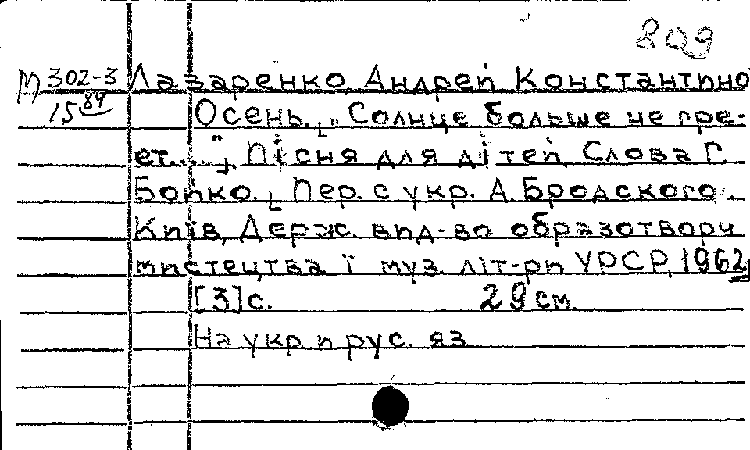 809
М 302-3
15 89
Лазаренко, Андрей Константино
Осень. [„Солнце больше не гре-
ет...."], Пісня для дітей. Слова Г.
Бойко. [Пер. с укр. А. Бродского.
Київ, Держ. вид-во образотворч
мистецтва і муз. літ-ри УРСР, 1962,
[3] с. 29 см
На укр. и рус. яз